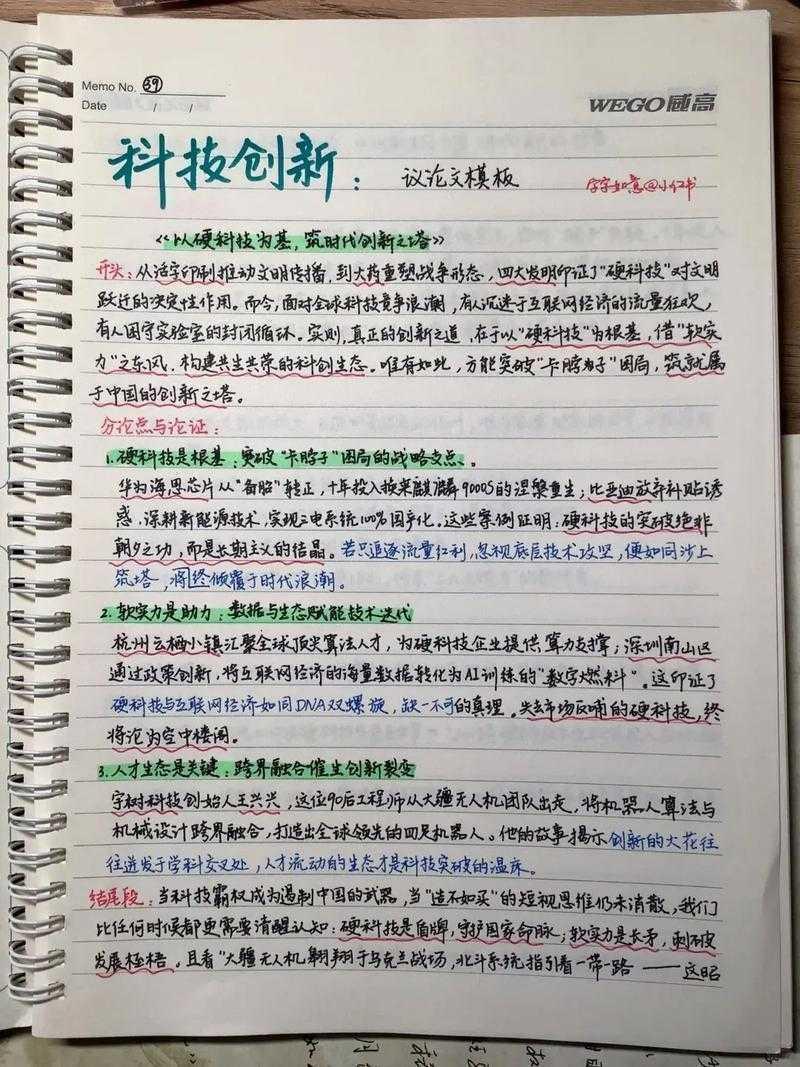 Memo No. 39
Date / /
WEGO威高
科技创新：议论文模板
字字如意@小红书
《以硬科技为基，筑时代创新之塔》
开头：从活字印刷推动文明传播，到火药重塑战争形态，四大发明印证了"硬科技"对文明
跃迁的决定性作用。而今，面对全球科技竞争浪潮，有人沉迷于互联网经济的流量狂欢，
有人困守实验室的封闭循环。实则，真正的创新之道，在于以"硬科技"为根基，借"软实
力"之东风，构建共生共荣的科创生态。唯有如此，方能突破"卡脖子"困局，筑就属
于中国的创新之塔。
分论点与论证：
1.硬科技是根基：突破"卡脖子"困局的战略支点。
华为海思芯片从"备胎"转正，十年投入换来麒麟9000S的涅槃重生；比亚迪放弃补贴诱
惑，深耕新能源技术，实现三电系统100%国产化。这些案例证明：硬科技的突破绝非
朝夕之功，而是长期主义的结晶。若只追逐流量红利，忽视底层技术攻坚，便如同沙上
筑塔，将终倾覆于时代浪潮。
2.软实力是助力：数据与生态赋能技术迭代
杭州云栖小镇汇聚全球顶尖算法人才，为硬科技企业提供算力支撑；深圳南山区
通过政策创新，将互联网经济的海量数据转化为AI训练的"数字燃料"。这印证了
硬科技与互联网经济如同DNA双螺旋，缺一不可的真理。失去市场反哺的硬科技，终
将沦为空中楼阁。
3.人才生态是关键：跨界融合催生创新裂变
宇树科技创始人王兴兴，这位90后工程师从大疆无人机团队出走，将机器人算法与
机械设计跨界融合，打造出全球领先的四足机器人。他的故事揭示创新的火花往
往迸发于学科交叉处，人才流动的生态才是科技突破的温床。
结尾段：当科技霸权成为遏制中国的武器，当"造不如买"的短视思维仍未消散，我们
比任何时候都更需要清醒认知：硬科技是盾牌，守护国家命脉；软实力是长矛，刺破
发展桎梏。且看"大疆无人机翱翔于乌克兰战场，北斗系统指引着一带一路——这昭